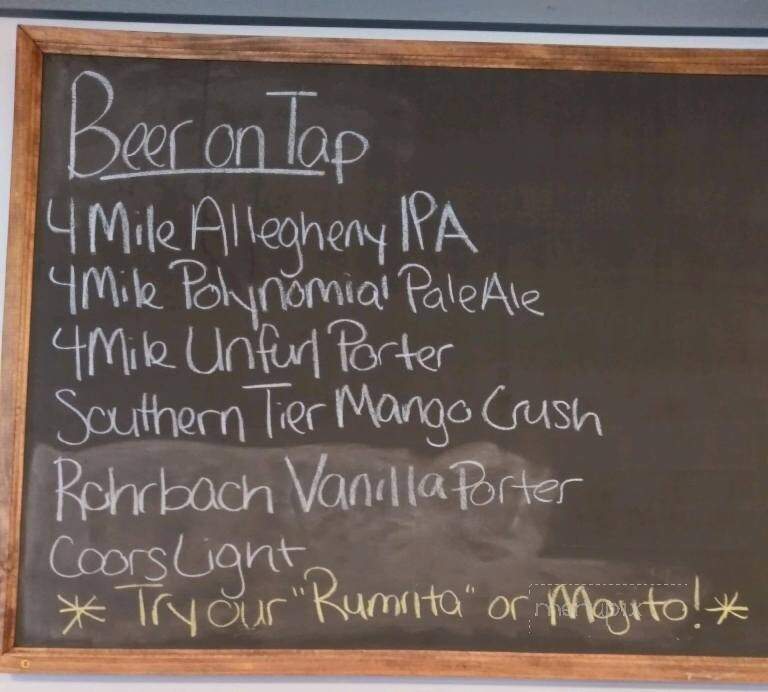 Beer on Tap
4 Mile Allegheny IPA
4 Mile Polynomial Pale Ale
4 Mile Unfurl Porter
Southern Tier Mango Crush
Rohrbach Vanilla Porter
Coors Light
* Try our "Rumrita" or Mojito! *
menupix